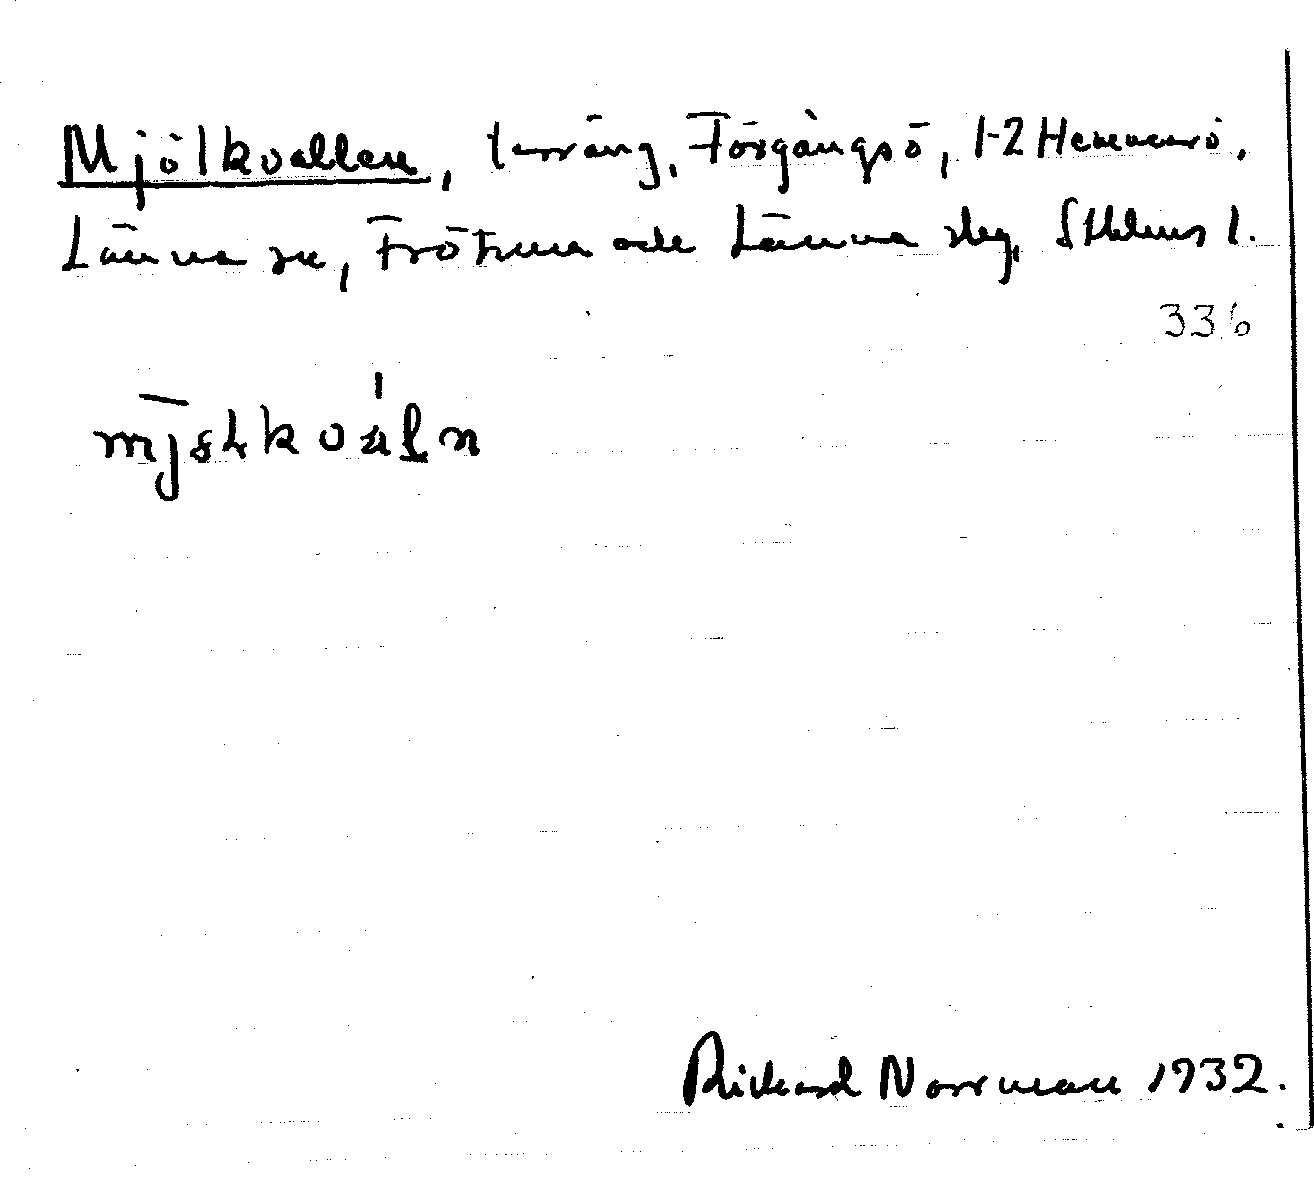 Mjölkvallen, terräng, Förgängsö, 1-2 Hemmarö,
Länna sn, Frötuna och Länna slg, Sthlms l.
336
Rickard Norrman 1932.